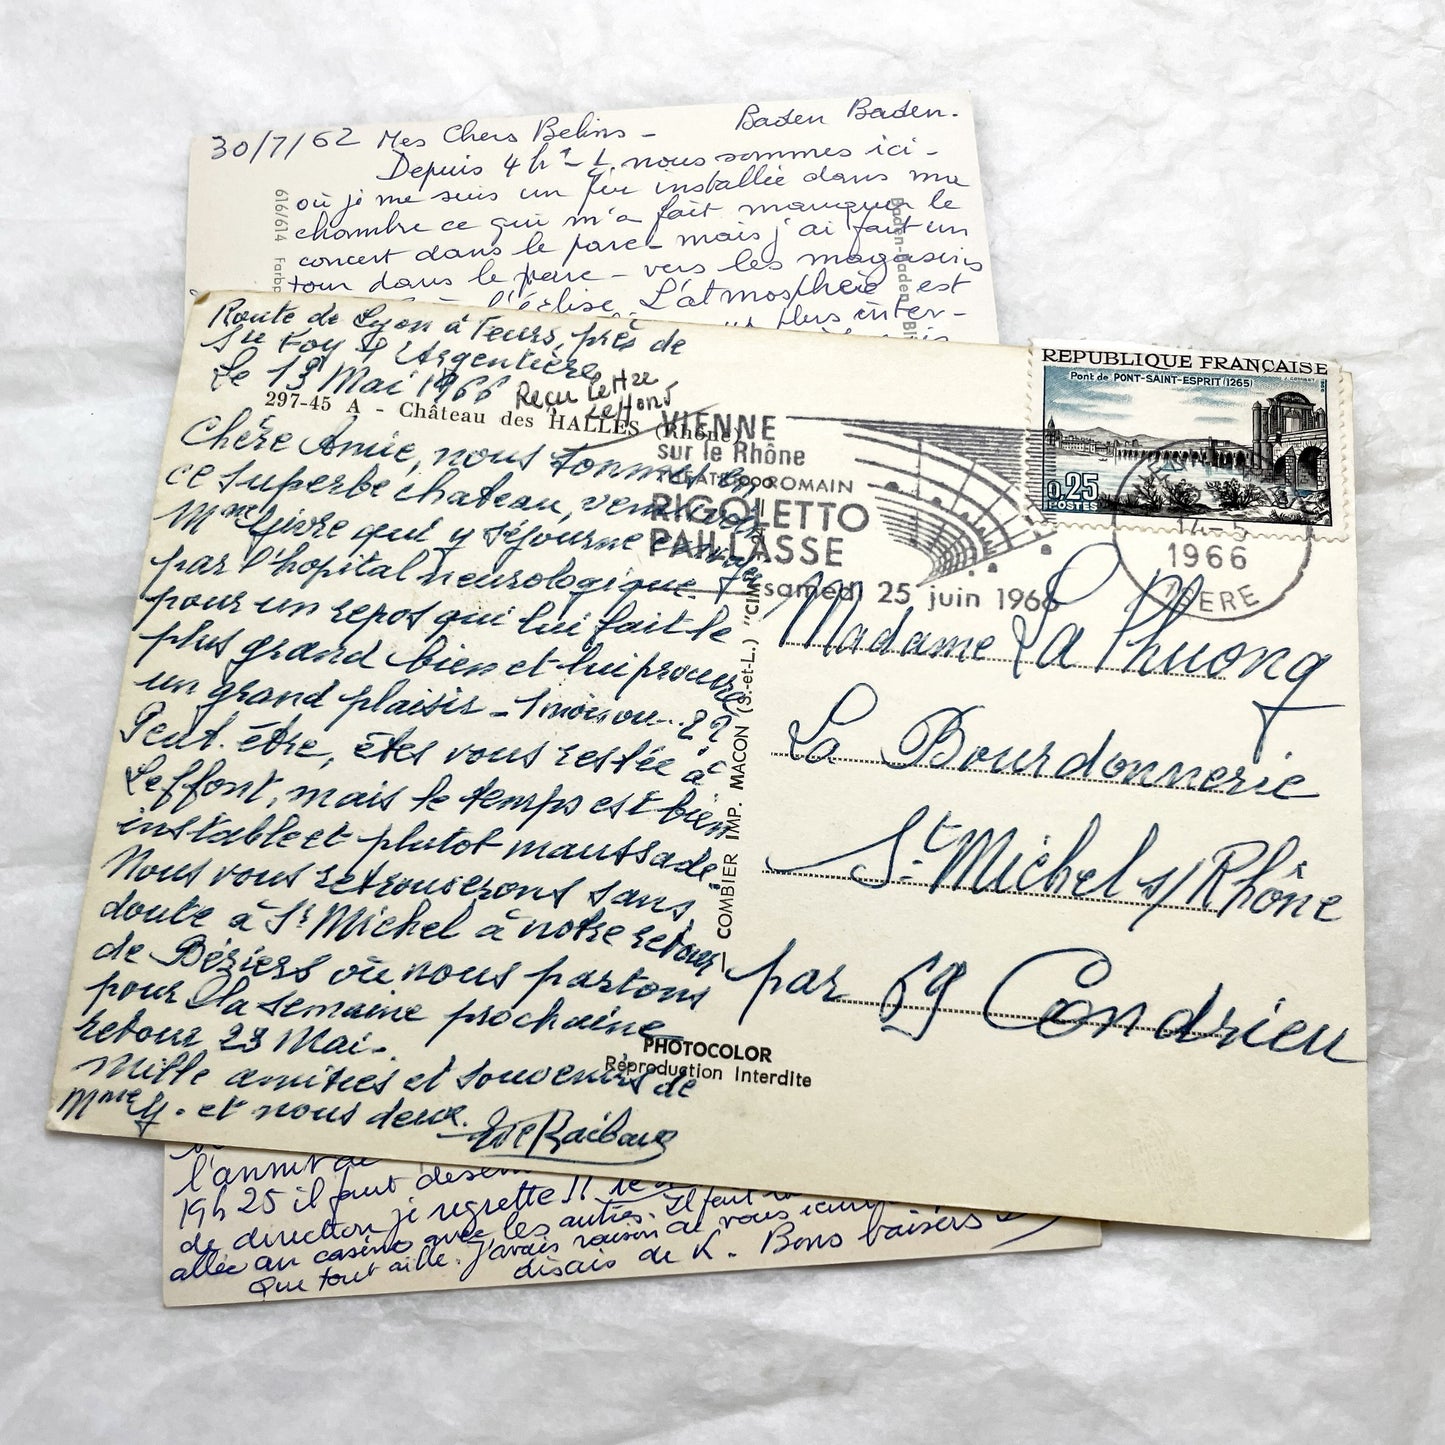 30/7/62 Mes Chers Belins - Baden Baden.
Depuis 4 h nous sommes ici -
où je me suis un peu installée dans ma
chambre ce qui m'a fait manquer le
concert dans le parc - mais j'ai fait un
tour dans le parc - vers les magasins
l'église. L'atmosphère est
plus inter-
616/614 Farbp
Baden-Baden
Route de Lyon à Feurs, près de
Ste Foy l'Argentière
Le 13 Mai 1966
Reçu lettre
Leffont
297-45 A - Château des HALLES (Rhône)
Chère Amie, nous sommes en
ce superbe chateau, venus voir
Mme Givre qui y séjourne envoyée
par l'hopital neurologique.
pour un repos qui lui fait le
plus grand bien et lui procure
un grand plaisir - 1 mois ou .. 2?
Peut. être, êtes vous restée à
Leffont, mais le temps est bien
instable et plutot maussade.
Nous vous retrouverons sans
doute à St Michel à notre retour
de Béziers où nous partons
pour la semaine prochaine
retour 23 Mai -
Mille amitiés et souvenirs de
Mme G. et nous deux.
COMBIER IMP. MACON (S.-et-L.) "CIM"
PHOTOCOLOR
Reproduction Interdite
VIENNE
sur le Rhône
THEATRE ROMAIN
RIGOLETTO
PAILLASSE
samedi 25 juin 1966
REPUBLIQUE FRANÇAISE
Pont de PONT-SAINT-ESPRIT (1265)
0,25
POSTES
14-5
1966
ISERE
Madame La Phuong
La Bourdonnerie
St Michel s/Rhône
par 69 Condrieu
19h 25 il faut
de direction je regrette !!
allée au casino avec les autres. Il faut
que tout aille. J'avais raison de vous
disais de K. Bons baisers